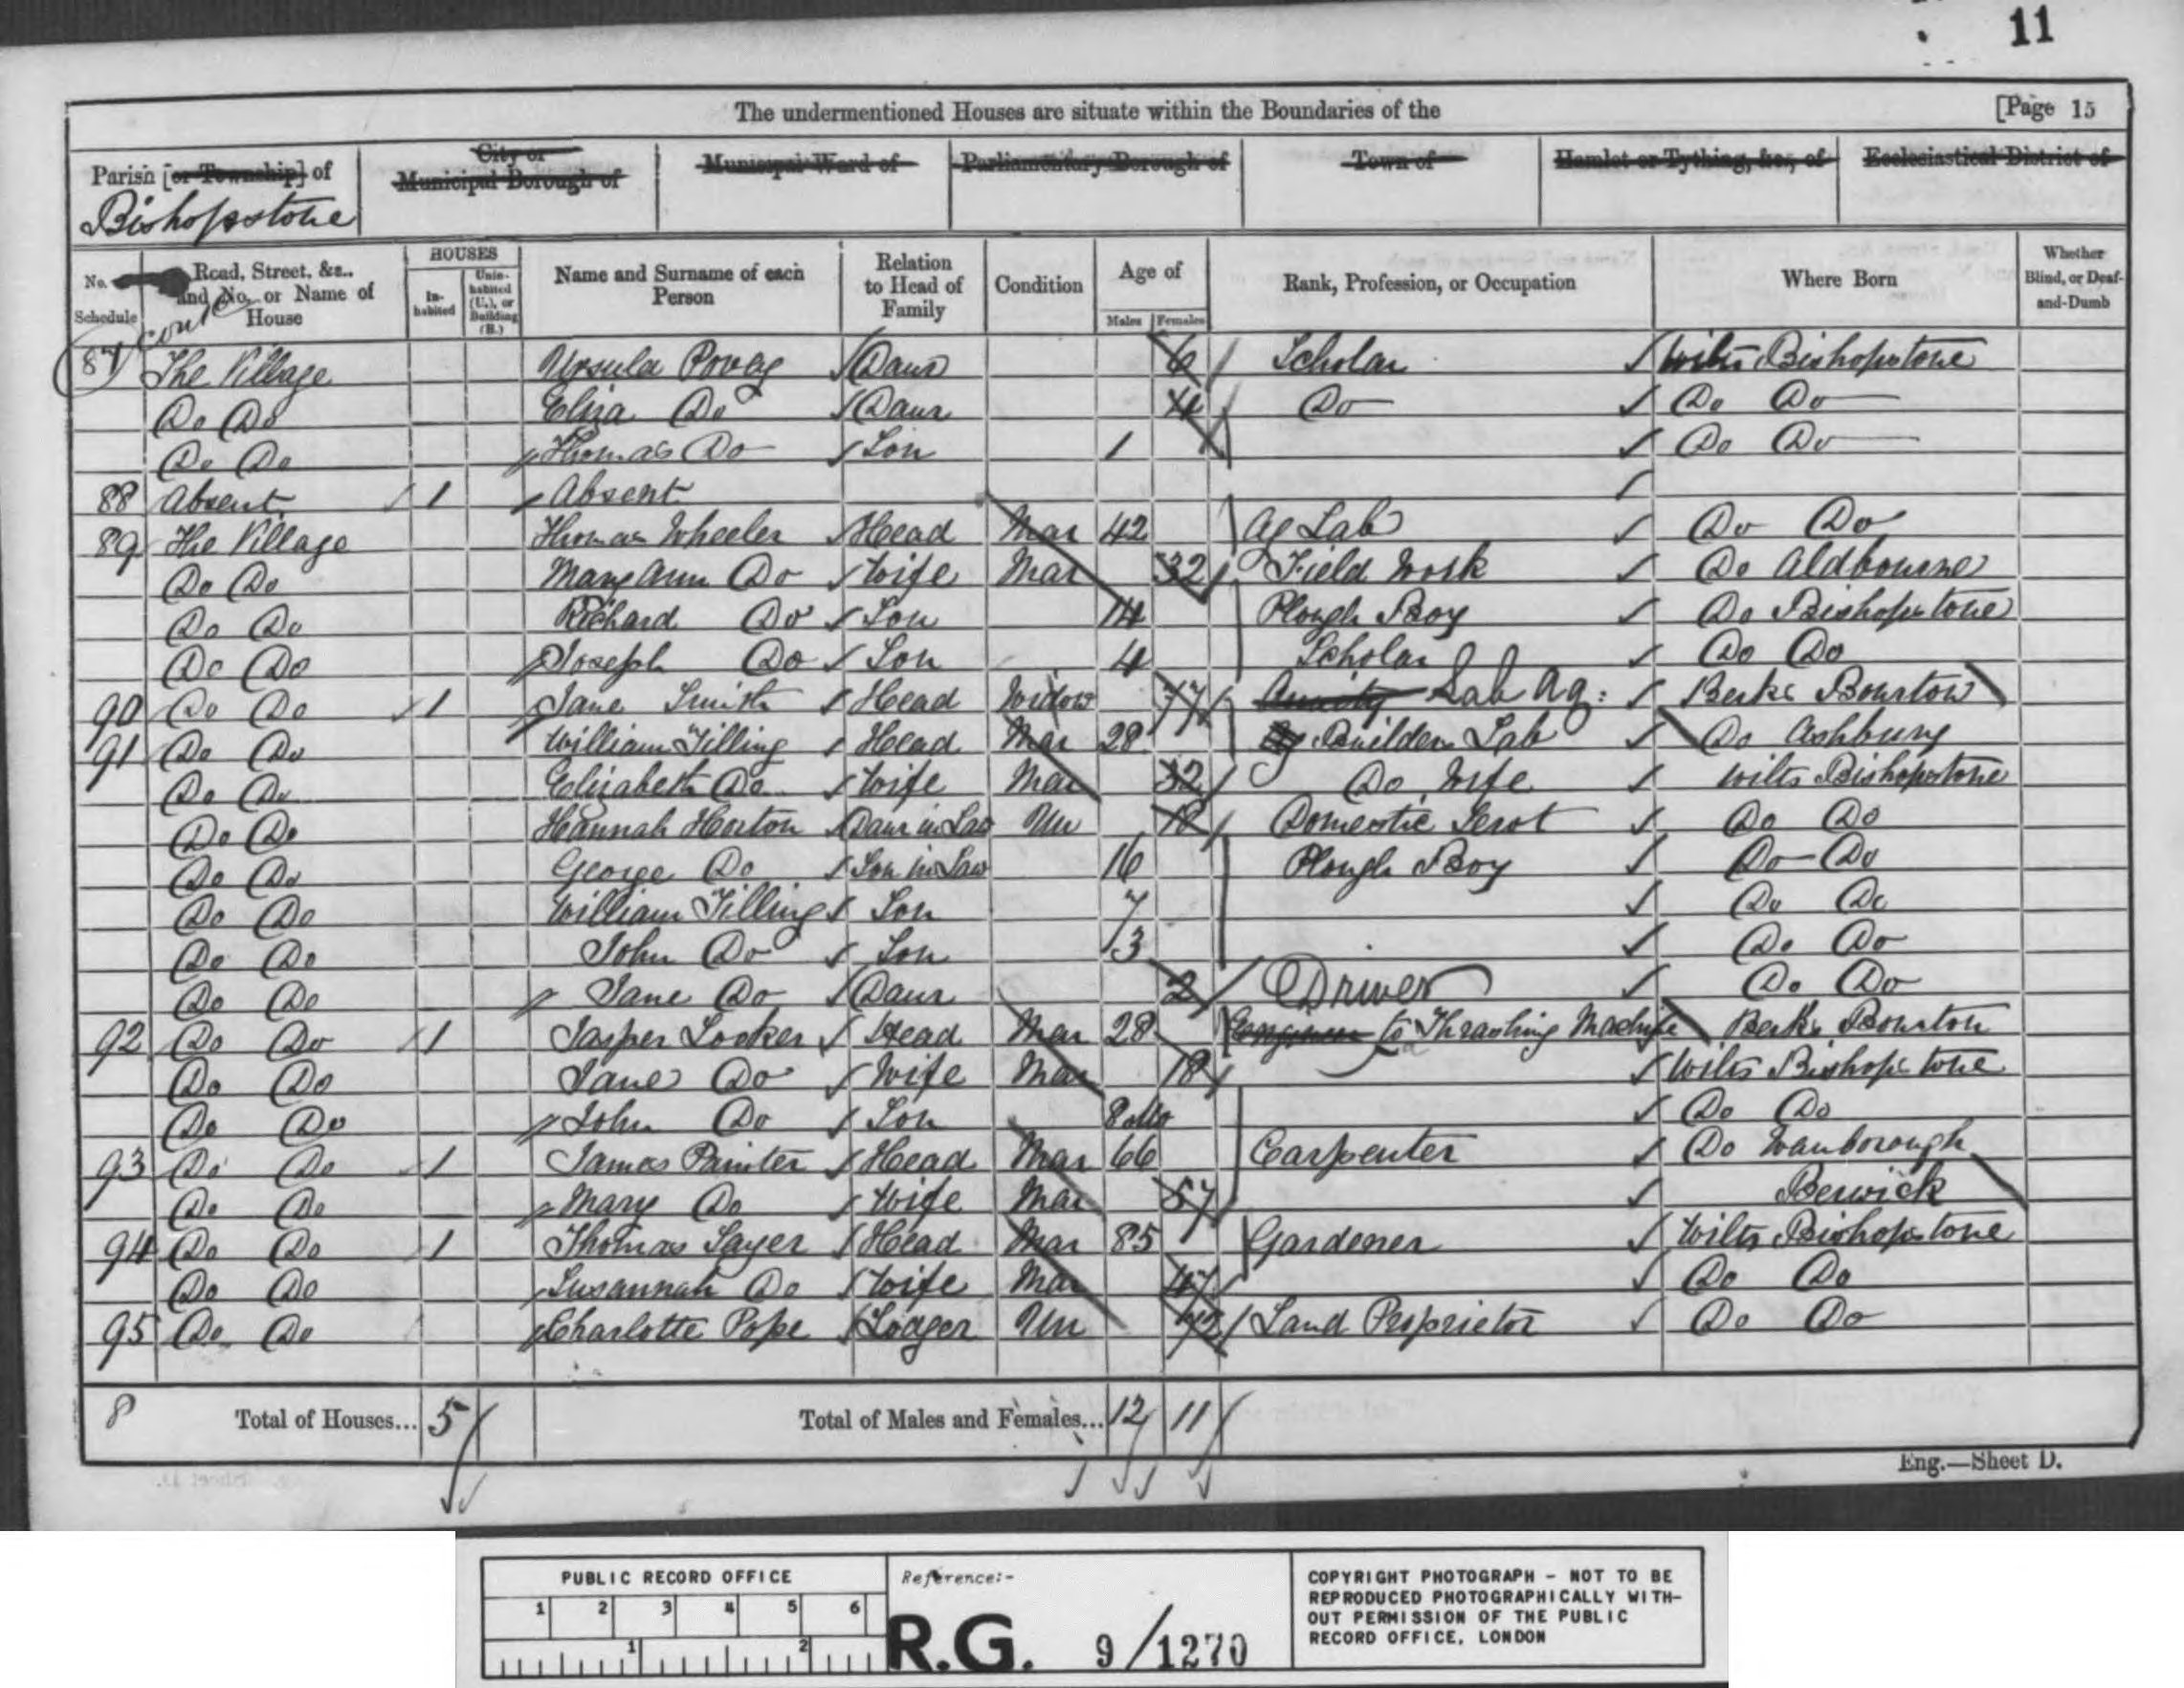 11
The undermentioned Houses are situate within the Boundaries of the [Page 15
Parish [or Township] of
City or Municipal Borough of
Municipal Ward of
Parliamentary Borough of
Town of
Hamlet or Tything, &c., of
Ecclesiastical District of
Bishopstone
No. Schedule
Road, Street, &c., and No. or Name of House
HOUSES
Inhabited
Uninhabited (U.), or Building (B.)
Name and Surname of each Person
Relation to Head of Family
Condition
Age of
Males Females
Rank, Profession, or Occupation
Where Born
Whether Blind, or Deaf-and-Dumb
cont
87 The Village Ursula Povey Daur 6 Scholar Wilts Bishopstone
Do Do Eliza Do Daur 4 Do Do Do
Do Do Thomas Do Son 1 Do Do
88 Absent 1 Absent
89 The Village Thomas Wheeler Head Mar 42 Ag Lab Do Do
Do Do Mary Ann Do Wife Mar 32 Field Work Do Aldbourne
Do Do Richard Do Son 14 Plough Boy Do Bishopstone
Do Do Joseph Do Son 4 Scholar Do Do
90 Do Do 1 Jane Smith Head Widow 77 Lab Ag: Berks Bourton
91 Do Do William Tilling Head Mar 28 Builders Lab Do Ashbury
Do Do Elizabeth Do Wife Mar 32 Do Wife Wilts Bishopstone
Do Do Hannah Horton Daur in Law Un 18 Domestic Servt Do Do
Do Do George Do Son in Law 16 Plough Boy Do Do
Do Do William Tilling Son 7 Do Do
Do Do John Do Son 3 Do Do
Do Do Jane Do Daur 2 Do Do
Driver
92 Do Do 1 Jasper Looker Head Mar 28 to Thrashing Machine Berks Bourton
Do Do Jane Do Wife Mar 18 Wilts Bishopstone
Do Do John Do Son 8 Mo Do Do
93 Do Do 1 James Painter Head Mar 66 Carpenter Do Wanborough
Do Do Mary Do Wife Mar 57 Berwick
94 Do Do 1 Thomas Sayer Head Mar 85 Gardener Wilts Bishopstone
Do Do Susannah Do Wife Mar 47 Do Do
95 Do Do Charlotte Pope Lodger Un 72 Land Proprietor Do Do
8 Total of Houses... 5 Total of Males and Females... 12 11
Eng.—Sheet D.
PUBLIC RECORD OFFICE
1 2 3 4 5 6
1 2
Reference:-
R.G. 9/1270
COPYRIGHT PHOTOGRAPH - NOT TO BE
REPRODUCED PHOTOGRAPHICALLY WITH-
OUT PERMISSION OF THE PUBLIC
RECORD OFFICE, LONDON